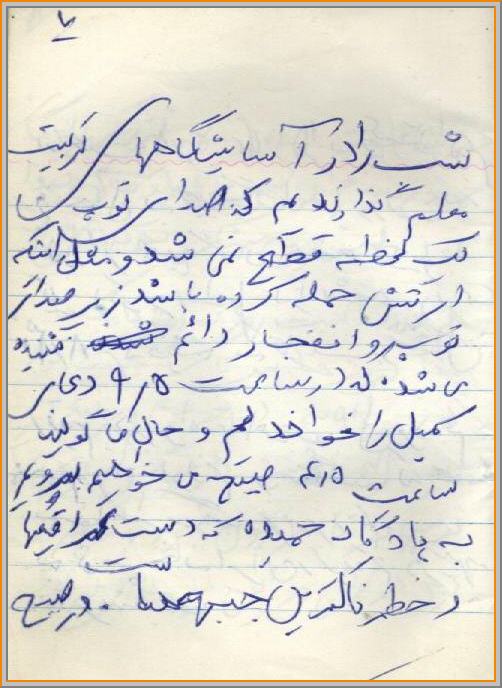 ۷
شب را در آسایشگاههای تربیت
معلم گذراندیم که صدای توپ
یک لحظه قطع نمی شد و مثل اینکه
ارتش حمله کرده باشد زیرا صدای
توپ و انفجار دائم شنیده
می شد. ساعت ۹٫۵ دعای
کمیل را خواندیم و حال که گویند
ساعت صبح می خواهیم برویم
به پادگان حمیدیه که دست عراقیها
ست
و خطرناکترین جبهه . و صبح